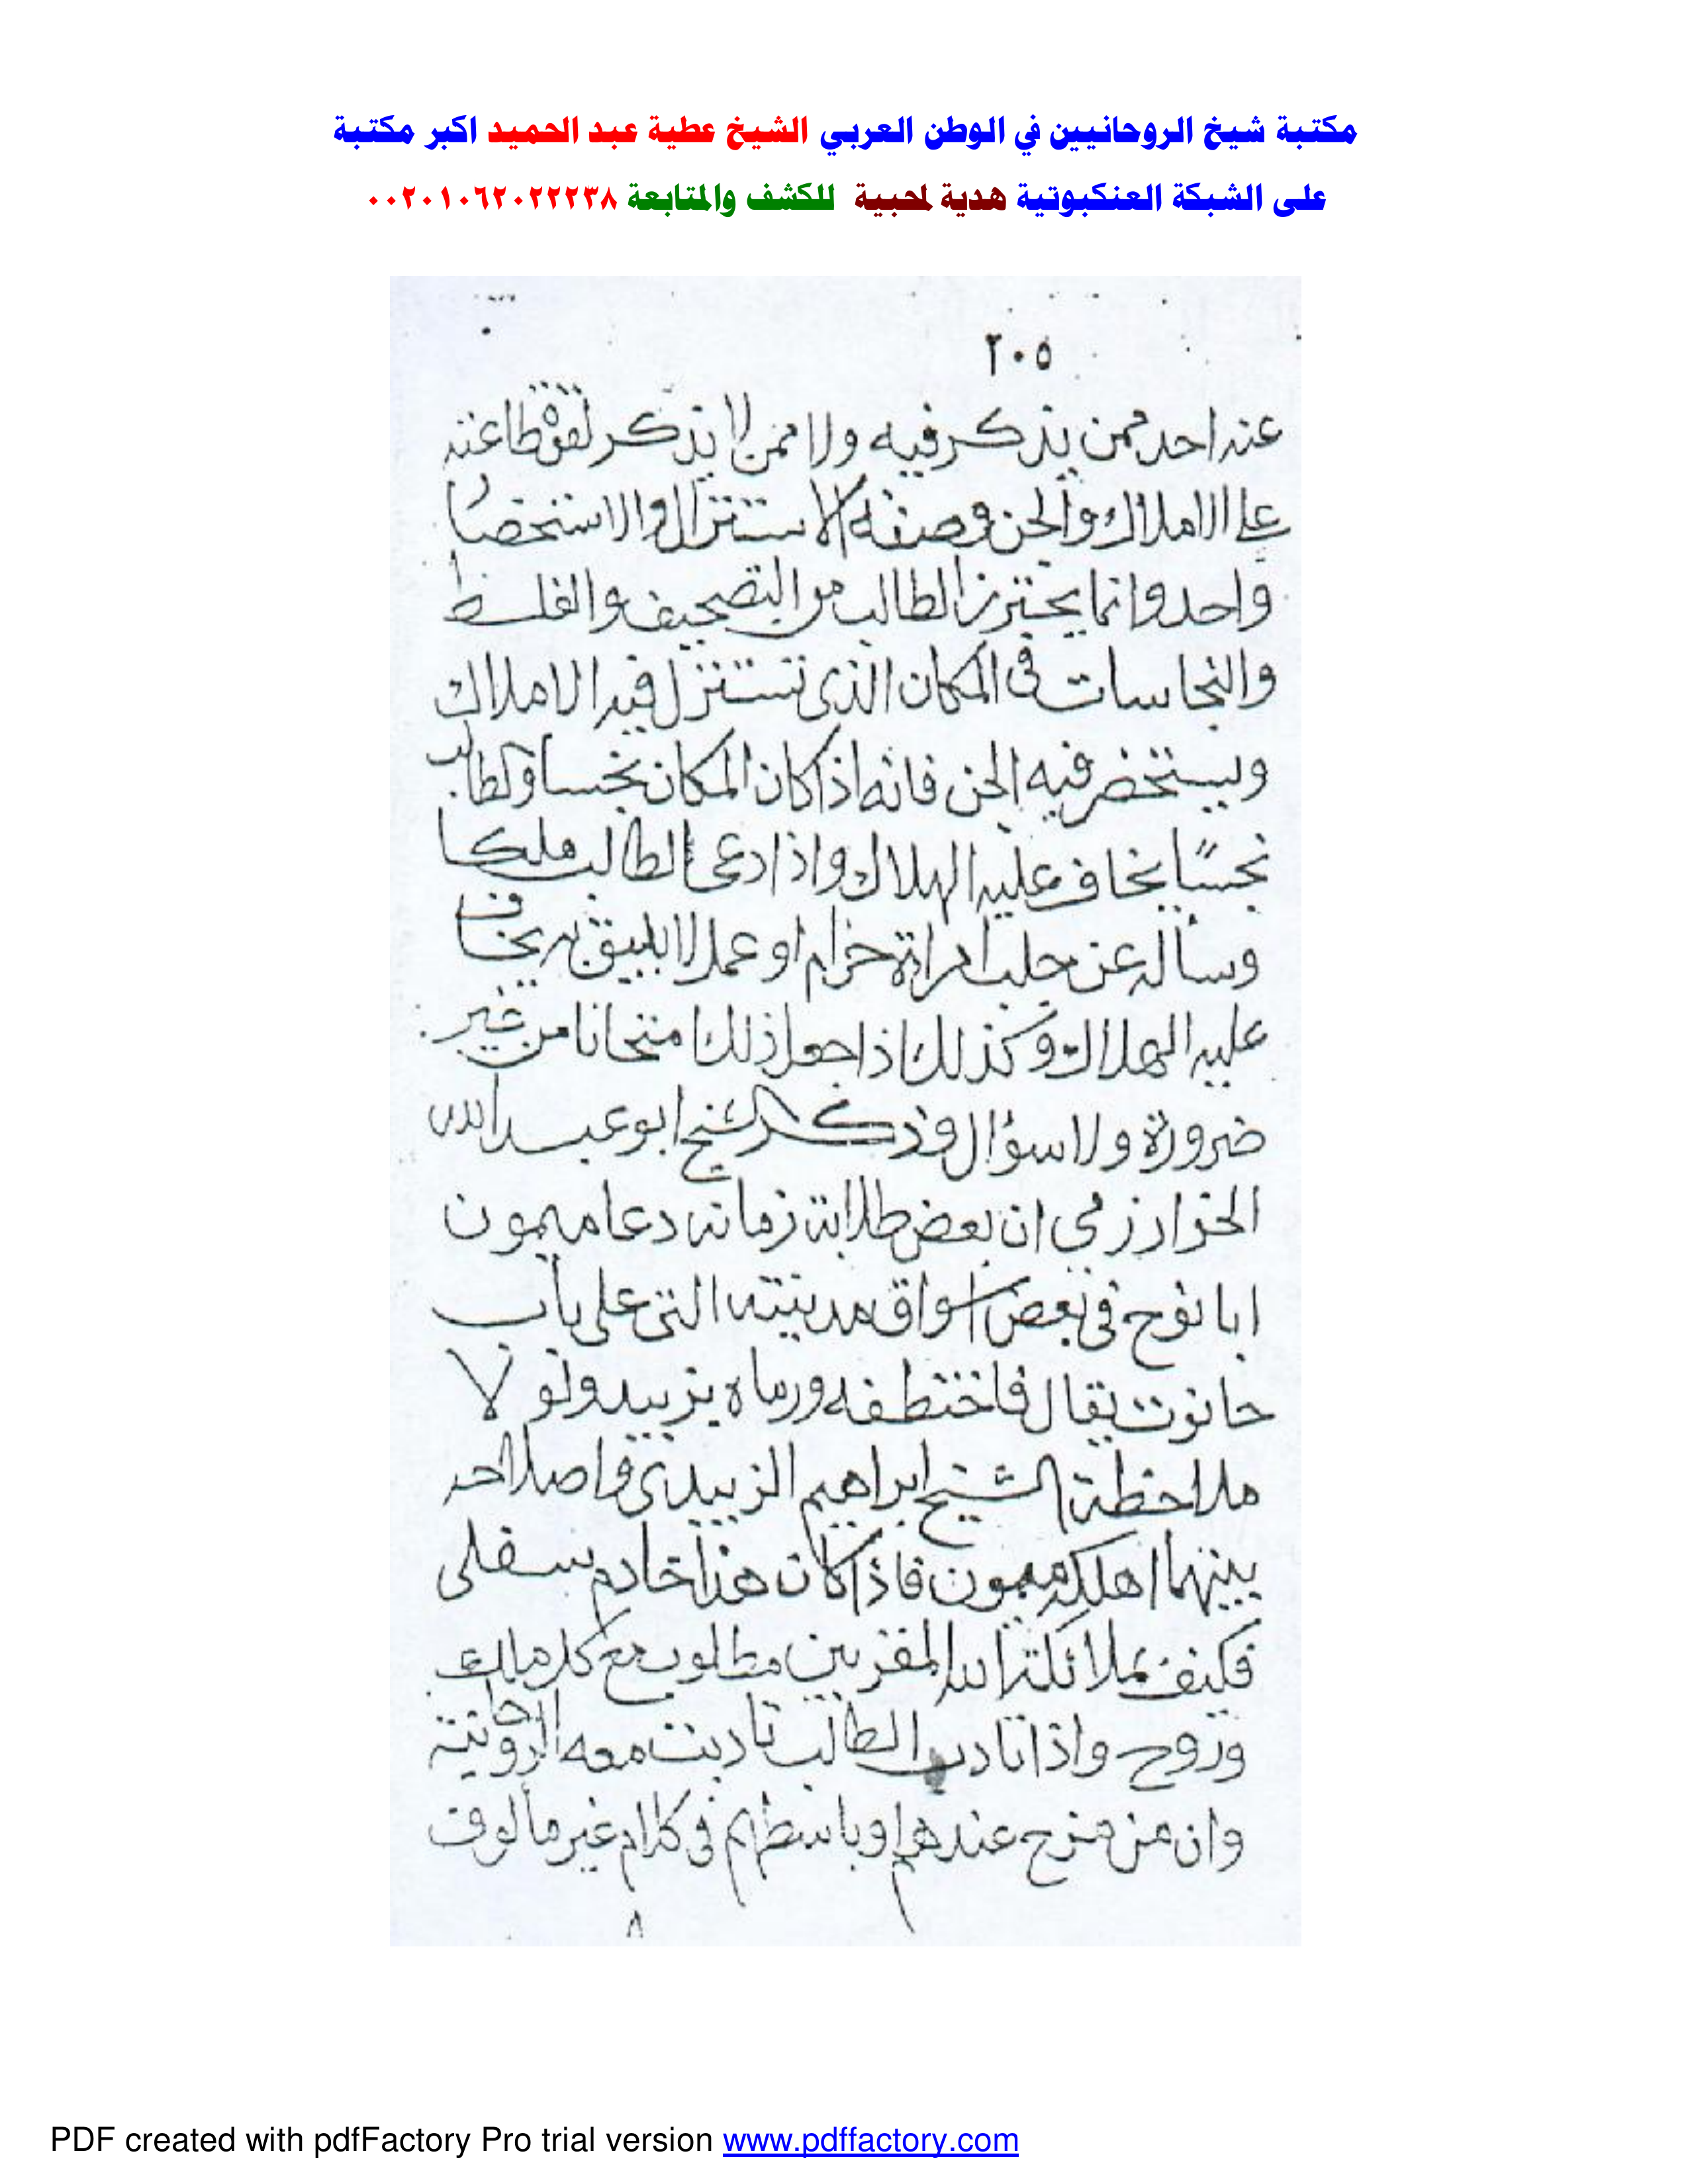 مكتبة شيخ الروحانيين في الوطن العربي الشيخ عطية عبد الحميد اكبر مكتبة
على الشبكة العنكبوتية هدية لمحبية للكشف والمتابعة ٠٠٢٠١٠٦٢٠٢٢٢٣٨
٢٠٥
عنه احد ممن يذكر فيه ولا ممن لا يذكر لقوة طاعته
على الاملاك والجن وصفة الاستنزال والاستحضار
واحد وانما يحترز الطالب من التصحيف والغلط
والنجاسات فى المكان الذى تستنزل فيه الاملاك
ويستحضر فيه الجن فانه اذا كان المكان نجسا والطالب
نجسًا يخاف عليه الهلاك واذا دعى الطالب ملكا
وسأله عن جلب امراة حرام او عمل لا يليق به يخاف
عليه الهلاك وكذلك اذا جعل ذلك امتحانا من غير
ضرورة ولا سؤال وذكر الشيخ ابو عبد الله
الخوارزمي ان بعض طلابة زمانه دعا ميمون
ابا نوح فى بعض اسواق مدينته التى على باب
حانوت بقال فاختطفه ورماه بزبيد ولو لا
ملاحظة الشيخ ابراهيم الزبيدى واصلاحه
بينهما اهلكه ميمون فاذا كان هذا خادم سفلى
فكيف بملائكة الله المقربين مع كل ملك
وروح واذا تادب الطالب تادبت معه الروحانية
وان من مزح عندهم او باسطهم فى كلام غير مألوف
٨
PDF created with pdfFactory Pro trial version www.pdffactory.com